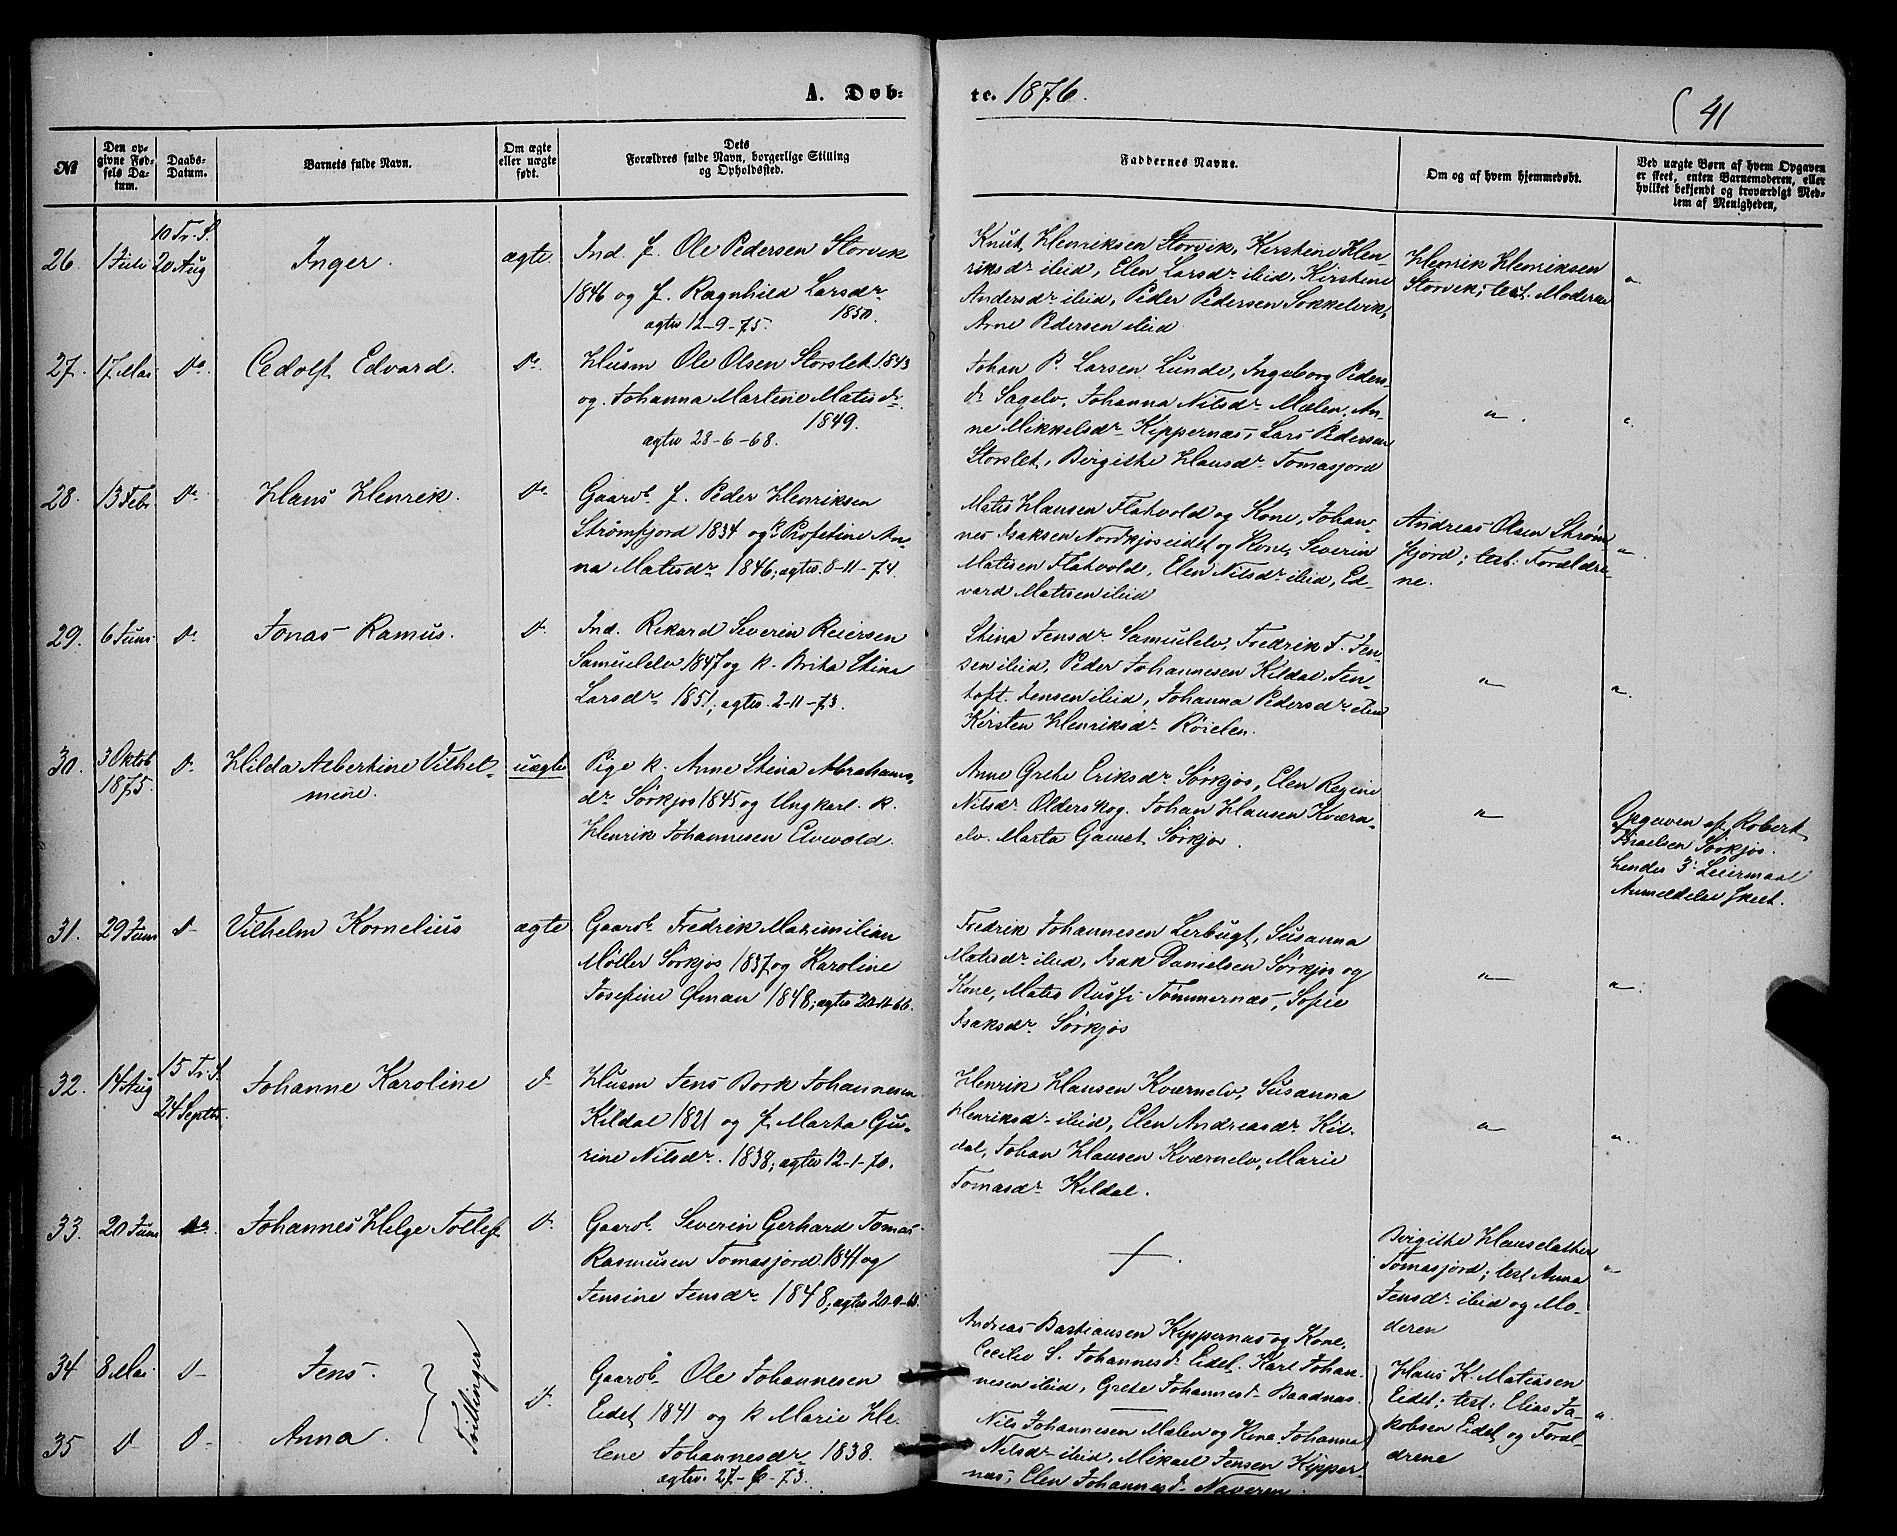 A. Døb-
tc. 1876.
41
№
Den op-
givne Fød-
sels Da-
tum.
Daabs-
Datum.
Barnets fulde Navn.
Om ægte
eller uægte
født.
Dets
Forældres fulde Navn, borgerlige Stilling
og Opholdssted.
Faddernes Navne.
Om og af hvem hjemmedøbt.
Ved uægte Børn af hvem Opgaven
er skeet, enten Barnemoderen, eller
hvilket bekjendt og troværdigt Med-
lem af Menigheden,
26.
1 Juli
10 Tr. S.
20 Aug
Inger.
ægte.
Ind. f. Ole Pedersen Storvik
1846 og f. Ragnhild Larsdr
1850.
ægtev 12-9-75.
Knut Henriksen Storvik, Kirstine Hen-
riksdr ibid, Elen Larsdr ibid, Kirstine
Andersdr ibid, Peder Pedersen Sokkelvik,
Arne Pedersen ibid
Henrik Henriksen
Storvik; test. Moderen
"
27.
17 Mai
Do
Cedolf Edvard.
Do
Husm Ole Olsen Storslet 1843
og Johanna Martine Matisdr
1849.
ægtev 28-6-68.
Johan P. Larsen Lunde, Ingeborg Peders-
dr Sagelv, Johanna Nilsdr Mælen, An-
ne Mikkelsdr Kippernæs, Lars Pedersen
Storslet, Birgithe Hansdr Tomasjord
"
"
28.
13 Febr
Do
Hans Henrik.
Do
Gaarb. f. Peder Henriksen
Strømfjord 1834 og k. Profetine An-
na Matisdr 1846; ægtev. 8-11-74.
Matis Hansen Flatvold og Kone, Johan-
nes Isaksen Nordkjoseidet og Kone, Severin
Matisen Flatvold, Elen Nilsdr ibid, Ed-
vard Matisen ibid
Andreas Olsen Strøm-
fjord; test: Forældre-
ne.
"
29.
6 Juni
Do
Jonas Ramus.
Do
Ind. Rikard Severin Reiersen
Samuelelv 1847 og k. Brita Stina
Larsdr 1851; ægtev. 2-11-73.
Stina Jensdr Samuelelv, Fredrik F. Jen-
sen ibid, Peder Johannesen Kildal, Jen-
toft Jensen ibid, Johanna Pedersdr ibid
Kirsten Henriksdr Røielen.
"
"
30.
3 Oktob
1875.
Do
Hilda Albertine Vilhel-
mine.
uægte
Pige k. Anne Stina Abrahams-
dr Sørkjos 1845 og Ungkarl. k.
Henrik Johannesen Elvevold.
Anne Grete Eriksdr Sørkjos, Elen Regine
Nilsdr Olderskog, Johan Hansen Kværn-
elv. Marta Gamst Sørkjos.
"
Opgaven af Robert
Israelsen Sørkjos.
hendes 3: Leiermaal
Anmeldelse skeet.
31.
29 Juni
Do
Vilhelm Kornelius
ægte
Gaarb. Fredrik Maximilian
Møller Sørkjos 1837 og Karoline
Josefine Öman 1848; ægtev 20-11-66.
Fredrik Johannesen Lerbugt, Susanna
Matisdr ibid, Isak Danielsen Sørkjos og
Kone, Matis Tømmernæs, Sofie
Isaksdr Sørkjos
"
"
32.
14 Aug
15 Tr. S.
24 Septbr.
Johanne Karoline
Do
Husm Jens Bork Johannesen
Kildal 1821 og f. Marta Gu-
rine Nilsdr. 1838; ægtev 12-1-70.
Henrik Hansen Kværnelv, Susanna
Henriksdr ibid, Elen Andreasdr Kil-
dal, Johan Hansen Kværnelv, Marie
Tomasdr Kildal.
"
"
33.
20 Juni
Do
Johannes Helge Tollef
Do
Gaarb. Severin Gerhard Tomas
Rasmusen Tomasjord 1841 og
Jensine Jensdr 1848; ægtev 20-9-68
Birgithe Hansdatter
Tomasjord; test Anna
Jensdr ibid og Mo-
deren
"
34
8 Mai
Do
Jens.
35
Do
Do
Anna.
Tvillinger
Do
Gaarb. Ole Johannesen
Eidet 1841 og k Marie He-
lene Johannesdr 1838.
ægtev. 27-6-73.
Andreas Bastiansen Kippernæs og Kone,
Cecilie S. Johannesdr Eidet. Karl Johan-
nesen ibid, Grete Johannesdr Baadnæs.
Nils Johannesen Mælen og Kona, Johanna
Nilsdr ibid, Mikael Jensen Kipper-
næs, Elen Johannesdr
Hans K. Matisen
Eidet; test: Elias Ja-
kobsen Eidet og Foræl-
drene
"